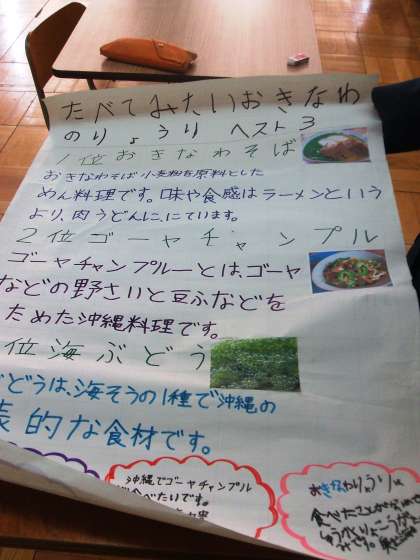 たべてみたいおきなわ
のりょうり ベスト3
1位おきなわそば
おきなわそば小麦粉を原料とした
めん料理です。味や食感はラーメンという
より、肉うどんに、にています。
2位ゴーヤチャンプル
ゴーヤチャンプルーとは、ゴーヤ
などの野さいと豆ふなどを
ためた沖縄料理です。
位海ぶどう
ぶどうは、海そうの1種で沖縄の
表的な食材です。
沖縄でゴーヤチャンプル
食べたいです。
おきなわりょうりは
食べたことが